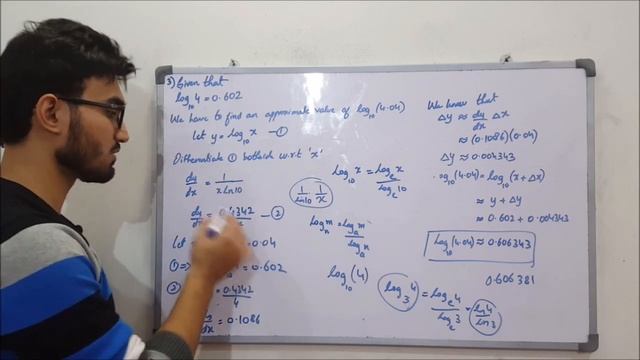 3) Given that
log₁₀4 = 0.602
We have to find an approximate value of log₁₀(4.04)
Let y = log₁₀x —①
Differentiate ① bothside w.r.t 'x'
dy/dx = 1/(x ln10)
dy/dx = 0.4342 —②
Let = 0.04
①⇒ = 0.602
② = 0.4342/4
dy/dx = 0.1086
log₁₀x = logₑx/logₑ10
1/ln10 1/x
logₙm = logₐm/logₐn
log₁₀(4)
log₃4 = logₑ4/logₑ3 = ln4/ln3
We know that
Δy ≈ dy/dx Δx
≈ (0.1086)(0.04)
Δy ≈ 0.004343
log₁₀(4.04) = log₁₀(x+Δx)
≈ y + Δy
≈ 0.602 + 0.004343
log₁₀(4.04) ≈ 0.606343
0.606381